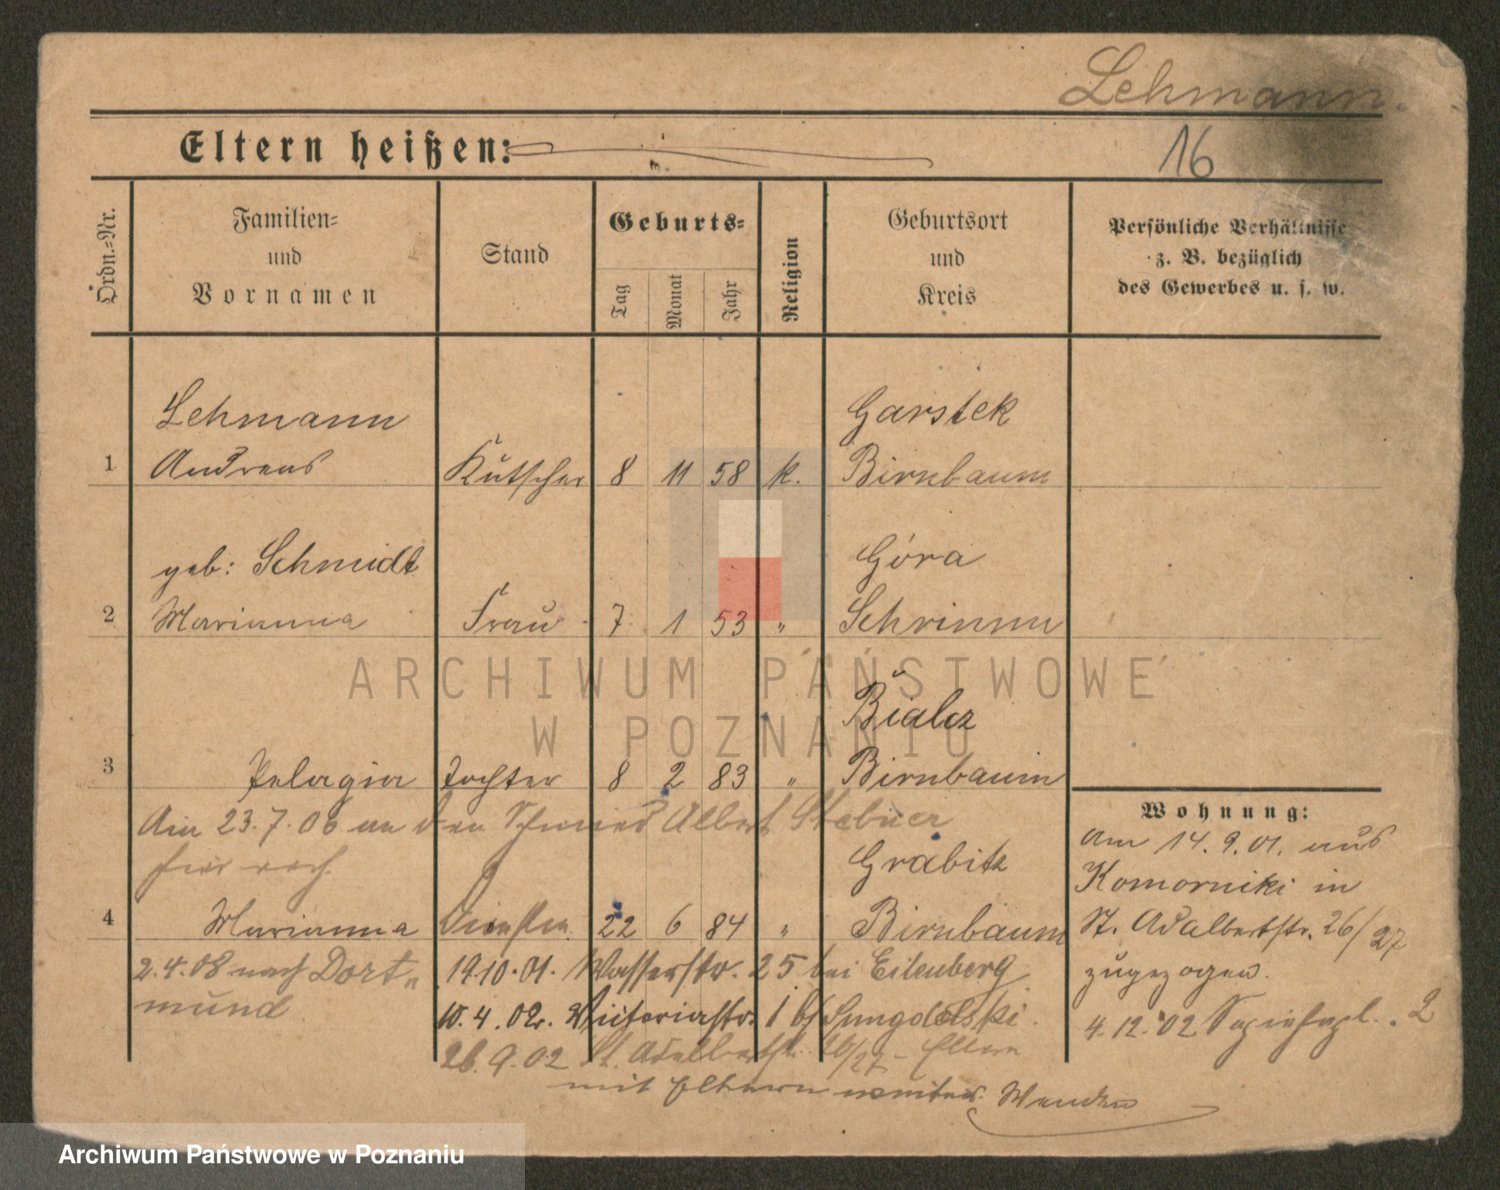 Lehmann.
Eltern heißen:
16
Ordn.=Nr.
Familien=
und
Vornamen
Stand
Geburts=
Tag
Monat
Jahr
Religion
Geburtsort
und
Kreis
Persönliche Verhältnisse
z. B. bezüglich
des Gewerbes u. s. w.
Lehmann Garstek
1 Andreas Kutscher 8 11 58 k. Birnbaum
geb: Schmidt Góra
2 Marianna Frau 7 1 53 " Schrimm
Bialcz
3 Pelagia Tochter 8 2 83 " Birnbaum
Am 23.7.06 an den Schmied Albert
Grabitz
4 Marianna 22 6 84 " Birnbaum
2.4.08 nach Dort=
mund
19.10.01. Wasserstr. 25 bei Eilenberg
10.4.02. Victoriastr. 1
26.9.02 St. Adalbertstr. 26/27 - Eltern
mit Eltern weiter Wenden
Wohnung:
Am 14.9.01. aus
Komorniki in
St. Adalbertstr. 26/27
zugezogen.
4.12.02 2
ARCHIWUM PAŃSTWOWE
W POZNANIU
Archiwum Państwowe w Poznaniu